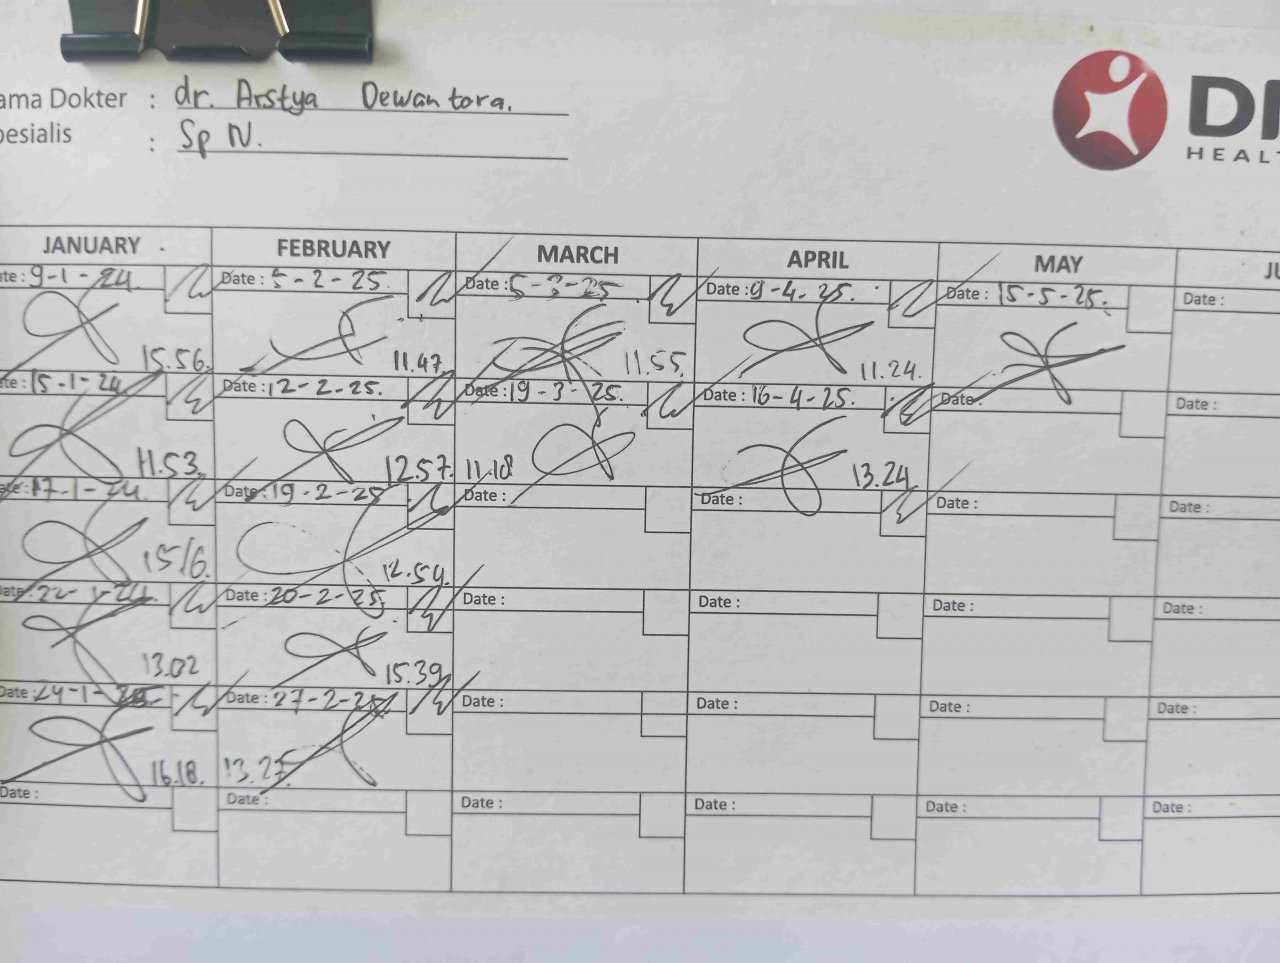 ama Dokter : dr. Arstya Dewantora.
pesialis : Sp N.
DI
HEALT
JANUARY FEBRUARY MARCH APRIL MAY JU
te: 9-1-24. Date: 5-2-25. Date: 5-3-25 Date: 9-4-25. Date: 15-5-25. Date:
15.56. 11.47. 11.55. 11.24.
te: 15-1-24 Date: 12-2-25. Date: 19-3-25. Date: 16-4-25. Date: Date:
11.53. 12.57. 11.18 13.24
ate: 17-1-24. Date: 19-2-25 Date: Date: Date: Date:
15/6. 12.54.
Date: 22-1-24. Date: 20-2-25. Date: Date: Date: Date:
13.02 15.39
Date: 24-1- Date: 27-2-25 Date: Date: Date: Date:
16.18. 13.27.
Date: Date: Date: Date: Date: Date: